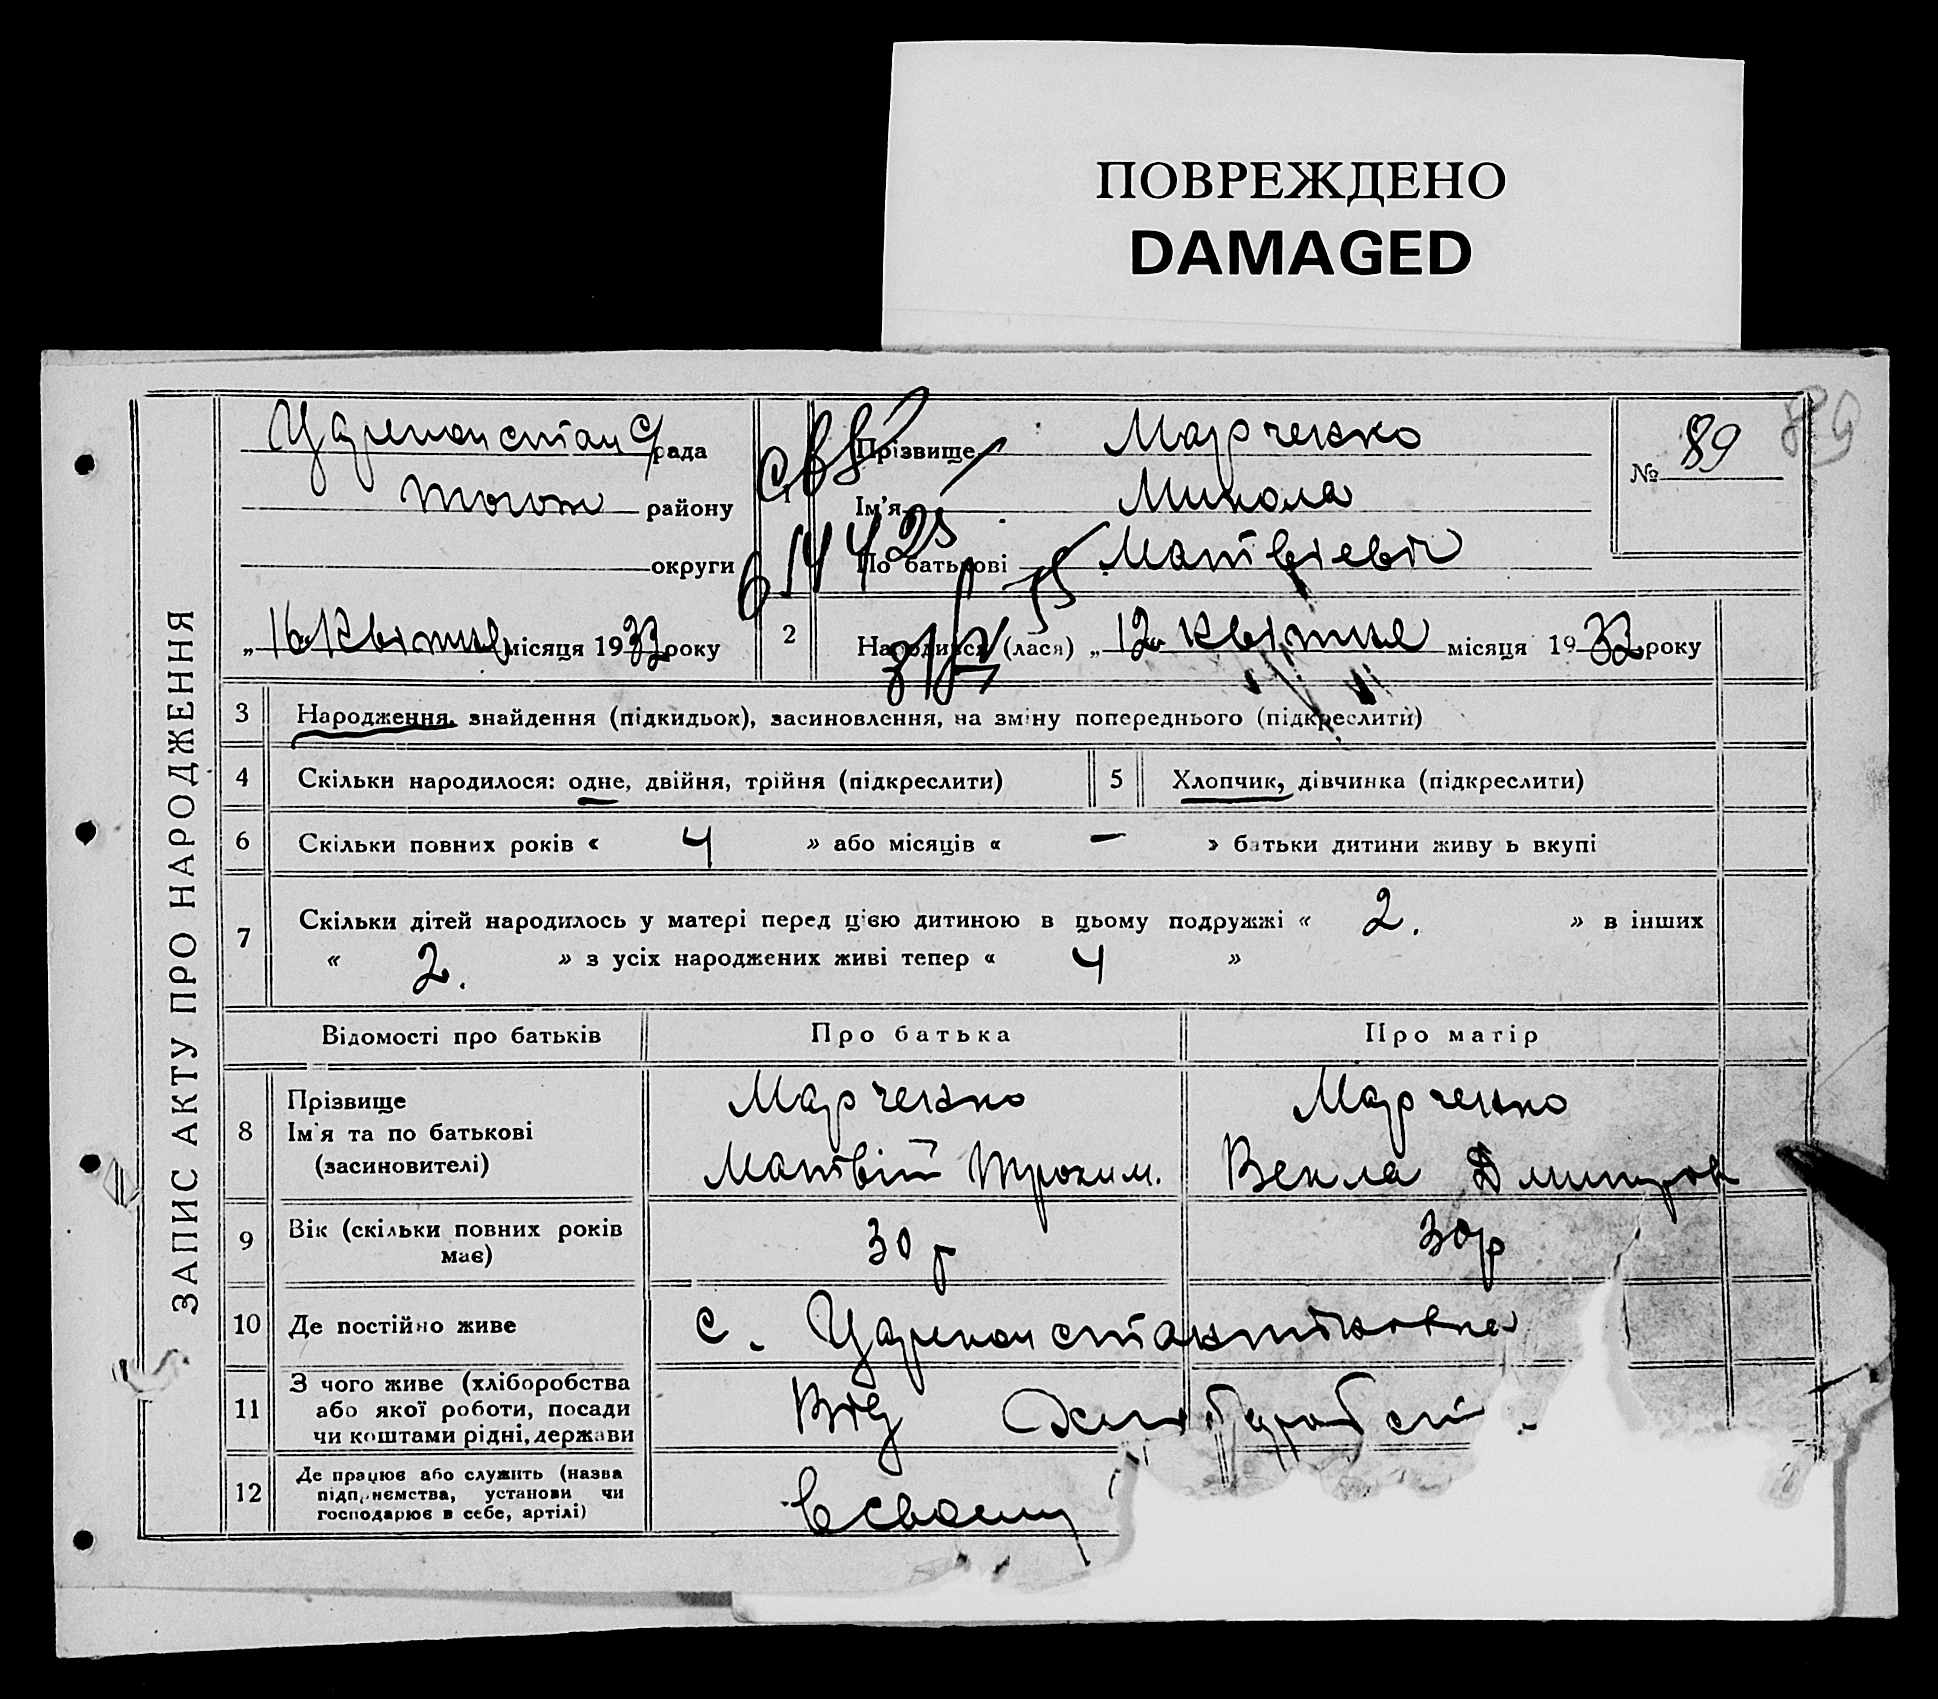 ПОВРЕЖДЕНО
DAMAGED
ЗАПИС АКТУ ПРО НАРОДЖЕННЯ
Цареконстан с/рада
району
округи
„16“ Квітня місяця 1933 року
1
Прізвище Марченко
Ім'я Микола
По батькові Матвієвіч
№ 89
89
свід
614425
2 Народився (лася) „12“ квітня місяця 1933 року
3 Народження, знайдення (підкидьок), засиновлення, на зміну попереднього (підкреслити)
4 Скільки народилося: одне, двійня, трійня (підкреслити) 5 Хлопчик, дівчинка (підкреслити)
6 Скільки повних років « 4 » або місяців « – » батьки дитини живу ь вкупі
7 Скільки дітей народилось у матері перед цією дитиною в цьому подружжі « 2. » в інших
« 2. » з усіх народжених живі тепер « 4 »
Відомості про батьків Про батька Про матір
8 Прізвище
Ім'я та по батькові
(засиновителі)
Марченко
Матвій Трохим.
Марченко
Векла Дмитров
9 Вік (скільки повних років
має)
30 р
30р
10 Де постійно живе с. Цареконстантиновка
11 З чого живе (хліборобства
або якої роботи, посади
чи коштами рідні, держави
Від хліборобст
12 Де працює або служить (назва
підприємства, установи чи
господарює в себе, артілі)
в своєму